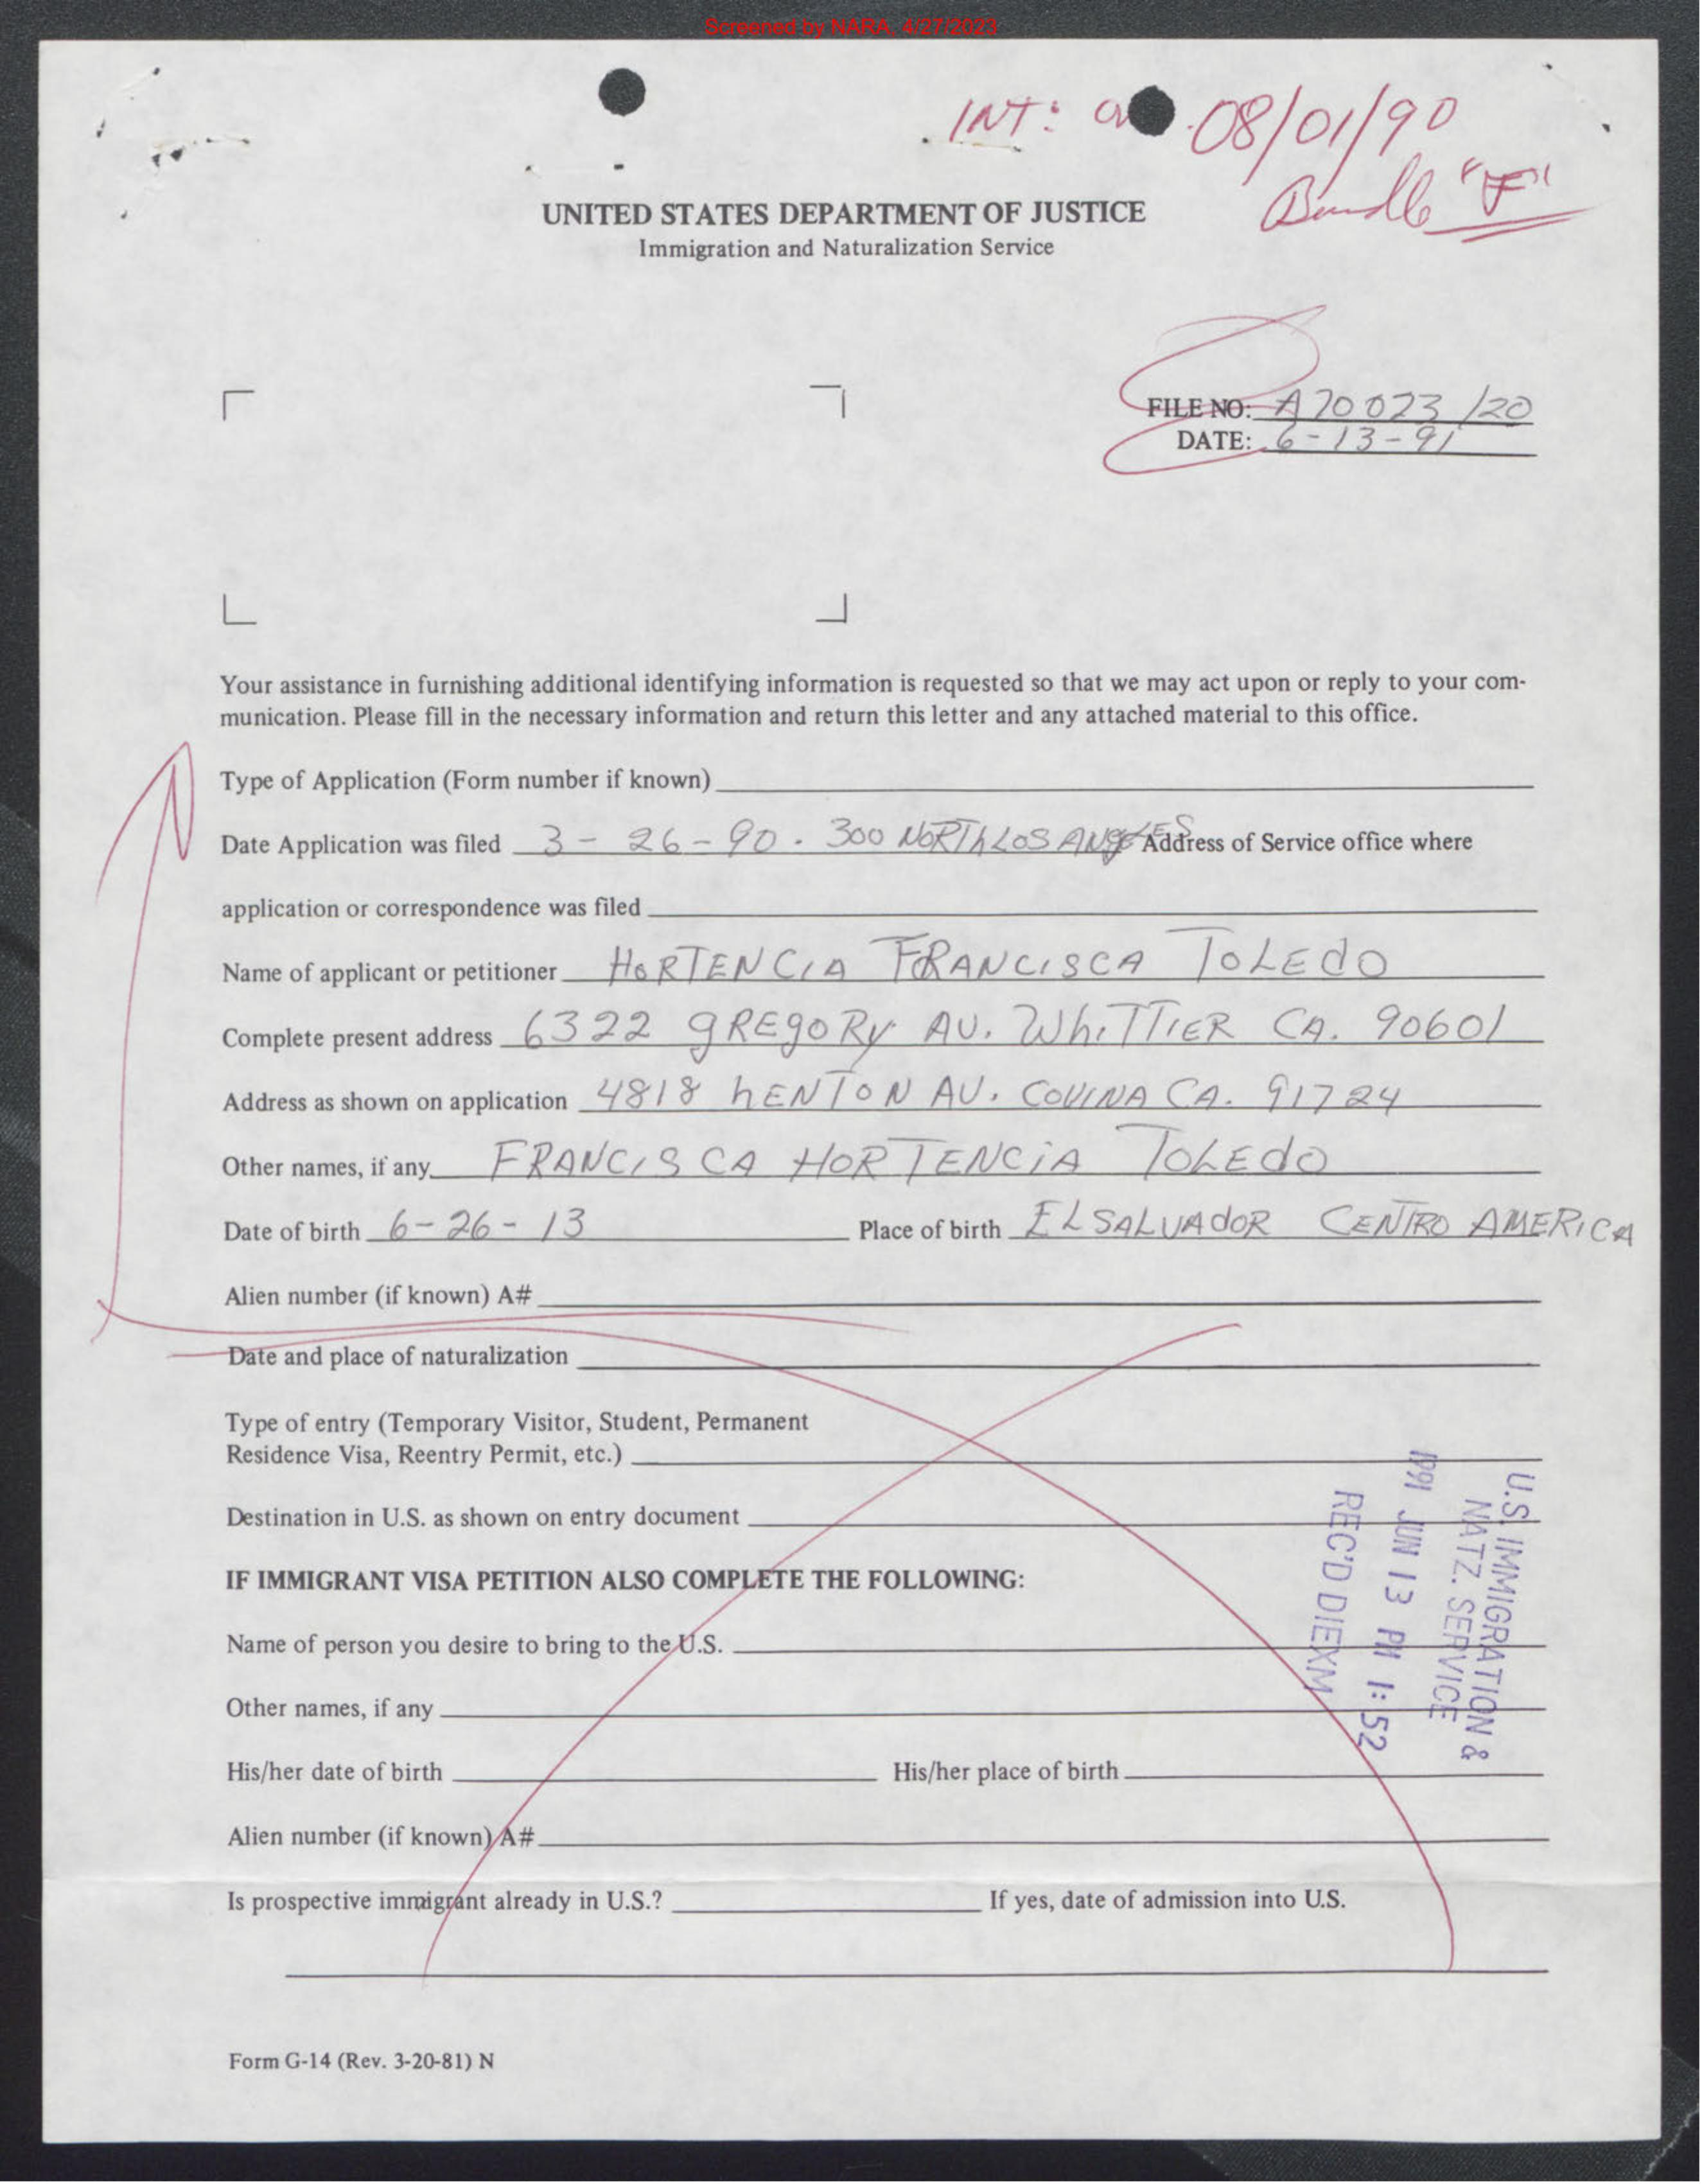 Screened by NARA, 4/27/2023
INT: 08/01/90
Bundle "F"
UNITED STATES DEPARTMENT OF JUSTICE
Immigration and Naturalization Service
FILE NO: A70 023 120
DATE: 6-13-91
Your assistance in furnishing additional identifying information is requested so that we may act upon or reply to your com-
munication. Please fill in the necessary information and return this letter and any attached material to this office.
Type of Application (Form number if known)
Date Application was filed 3-26-90. 300 NORTh LOS ANgELES Address of Service office where
application or correspondence was filed
Name of applicant or petitioner HORTENCIA FRANCISCA TOLEdO
Complete present address 6322 gREgORy AV. WhiTTIER CA. 90601
Address as shown on application 4818 hENTON AV. COVINA CA. 91724
Other names, if any FRANCISCA HORTENCiA TOLEdO
Date of birth 6-26-13 Place of birth EL SALVAdOR CENTRO AMERICA
Alien number (if known) A#
Date and place of naturalization
Type of entry (Temporary Visitor, Student, Permanent
Residence Visa, Reentry Permit, etc.)
Destination in U.S. as shown on entry document
IF IMMIGRANT VISA PETITION ALSO COMPLETE THE FOLLOWING:
Name of person you desire to bring to the U.S.
Other names, if any
His/her date of birth His/her place of birth
Alien number (if known) A#
Is prospective immigrant already in U.S.? If yes, date of admission into U.S.
U.S. IMMIGRATION &
NATZ. SERVICE
1991 JUN 13 PM 1:52
REC'D DIEXM
Form G-14 (Rev. 3-20-81) N